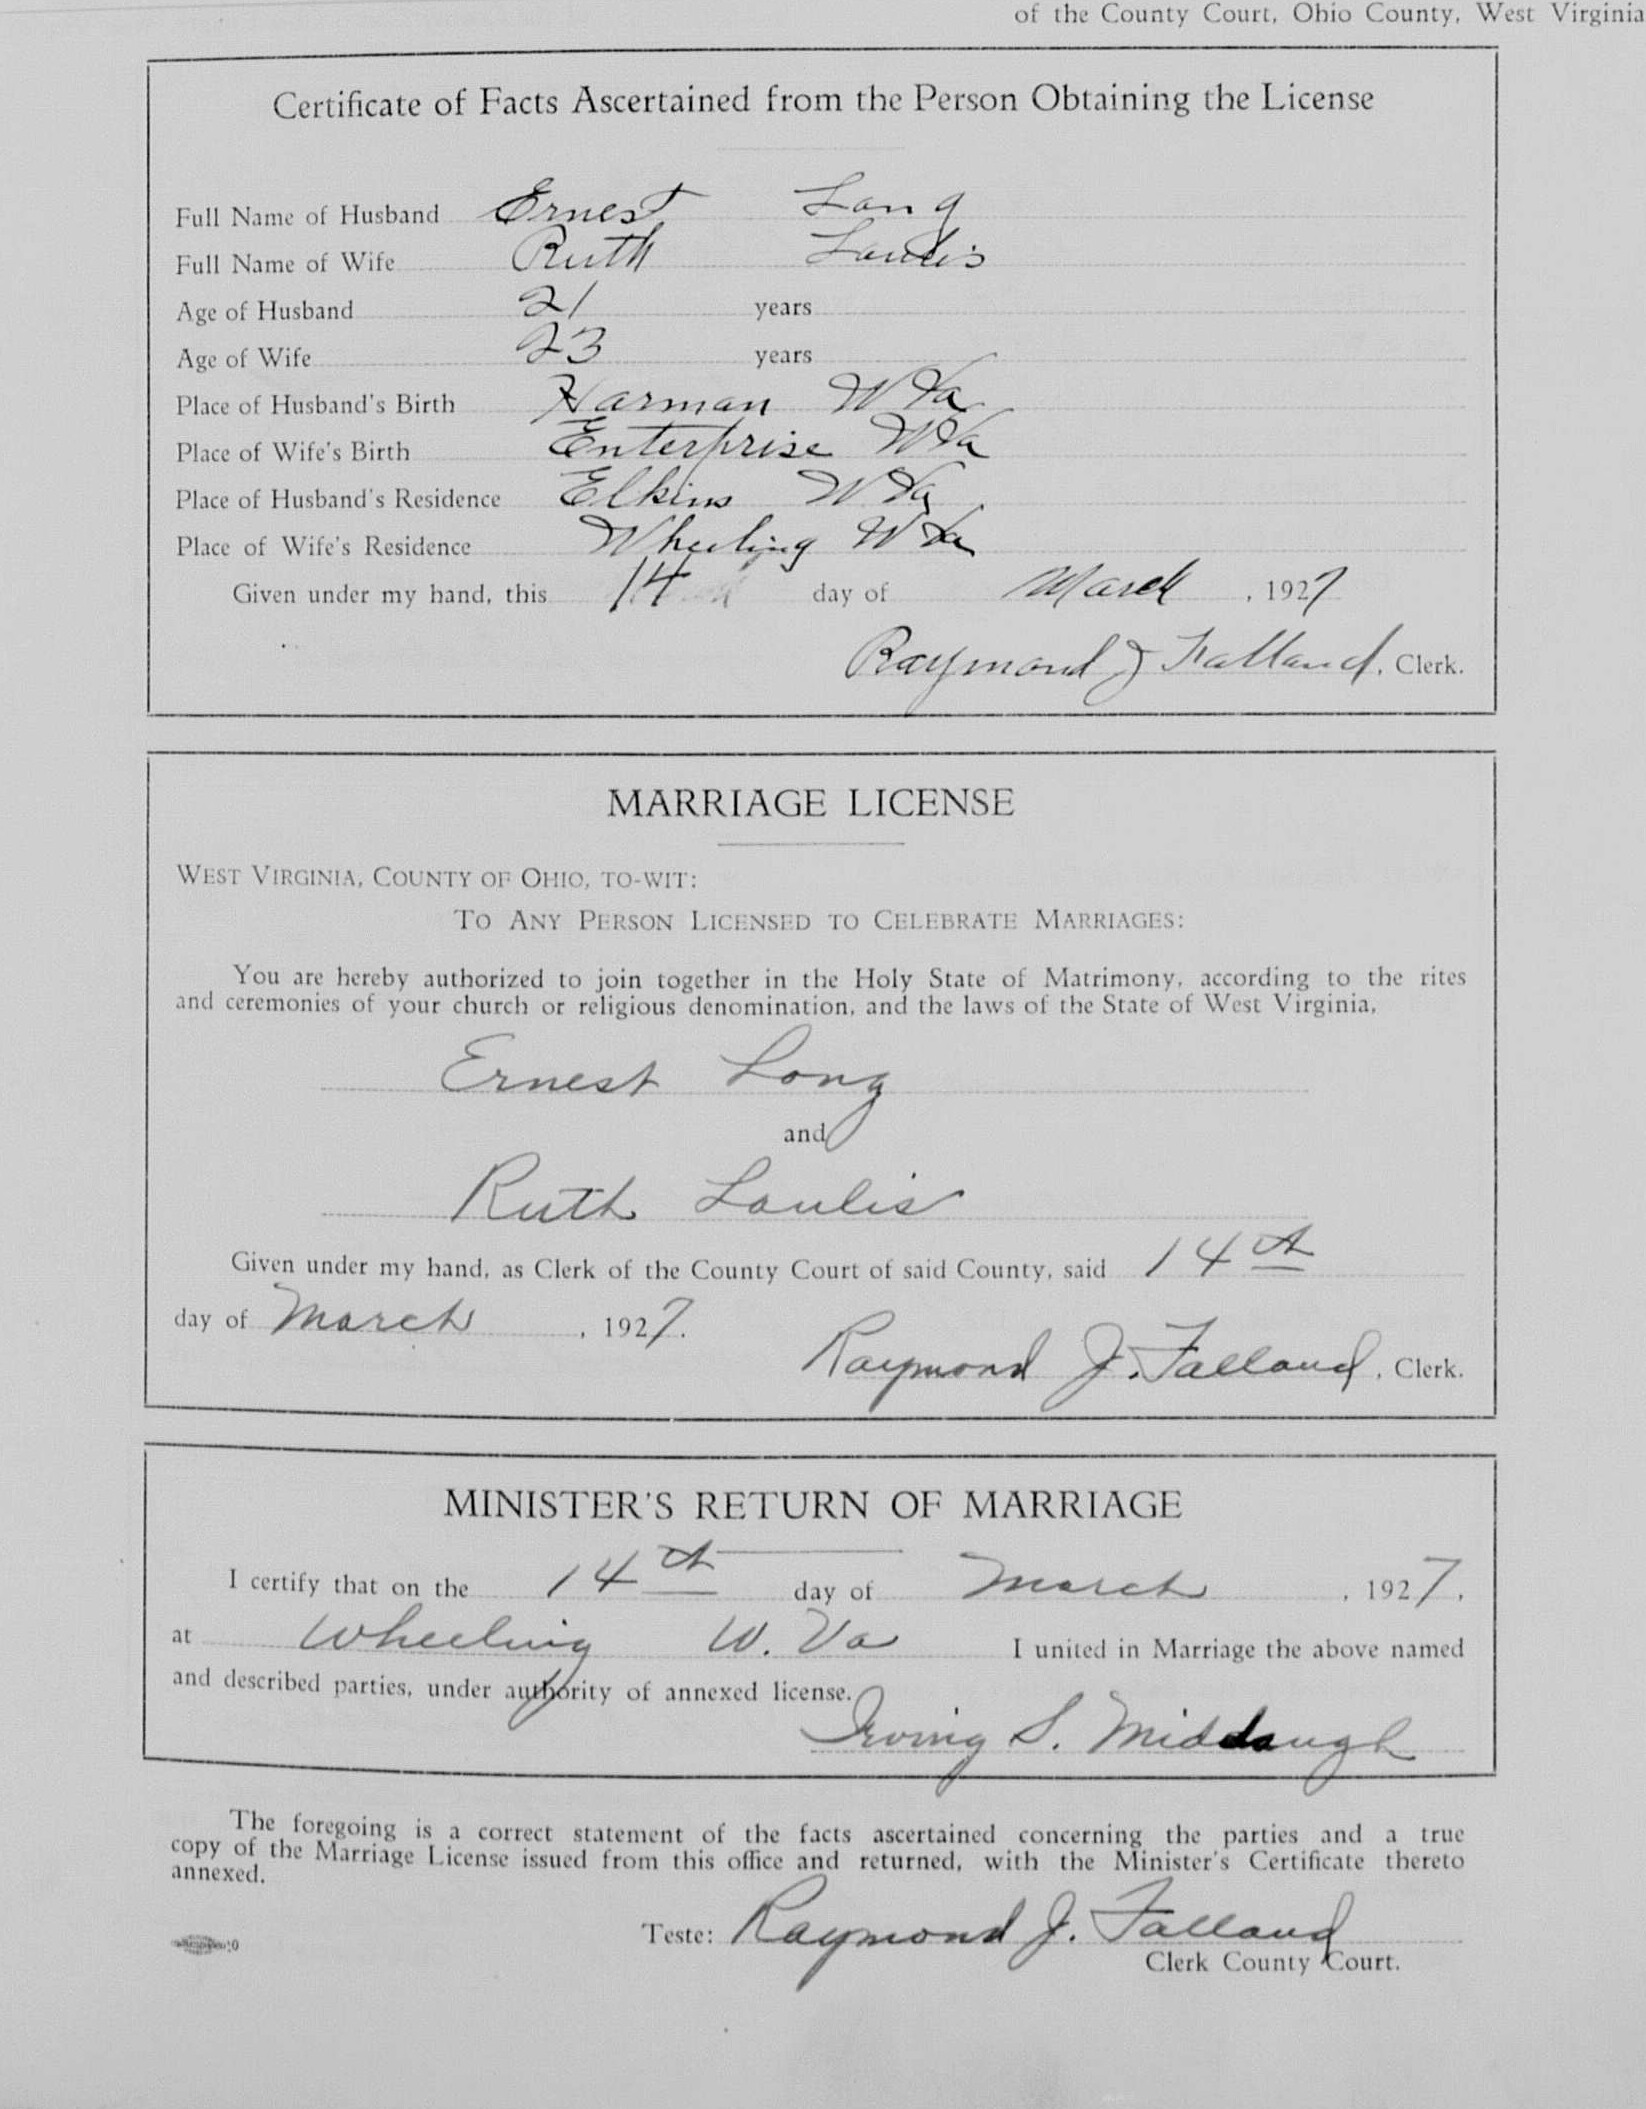 of the County Court, Ohio County, West Virginia
Certificate of Facts Ascertained from the Person Obtaining the License
Full Name of Husband Ernest Long
Full Name of Wife Ruth
Age of Husband 21 years
Age of Wife 23 years
Place of Husband's Birth Harman W Va
Place of Wife's Birth Enterprise W Va
Place of Husband's Residence Elkins W Va
Place of Wife's Residence Wheeling W Va
Given under my hand, this 14 day of March, 1927
Raymond J Falland, Clerk.
MARRIAGE LICENSE
WEST VIRGINIA, COUNTY OF OHIO, TO-WIT:
TO ANY PERSON LICENSED TO CELEBRATE MARRIAGES:
You are hereby authorized to join together in the Holy State of Matrimony, according to the rites
and ceremonies of your church or religious denomination, and the laws of the State of West Virginia,
Ernest Long
and
Ruth Laulis
Given under my hand, as Clerk of the County Court of said County, said 14th
day of March, 1927.
Raymond J. Falland, Clerk.
MINISTER'S RETURN OF MARRIAGE
I certify that on the 14th day of March, 1927,
at Wheeling W. Va I united in Marriage the above named
and described parties, under authority of annexed license.
Irving S. Middaugh
The foregoing is a correct statement of the facts ascertained concerning the parties and a true
copy of the Marriage License issued from this office and returned, with the Minister's Certificate thereto
annexed.
Teste: Raymond J. Falland
Clerk County Court.